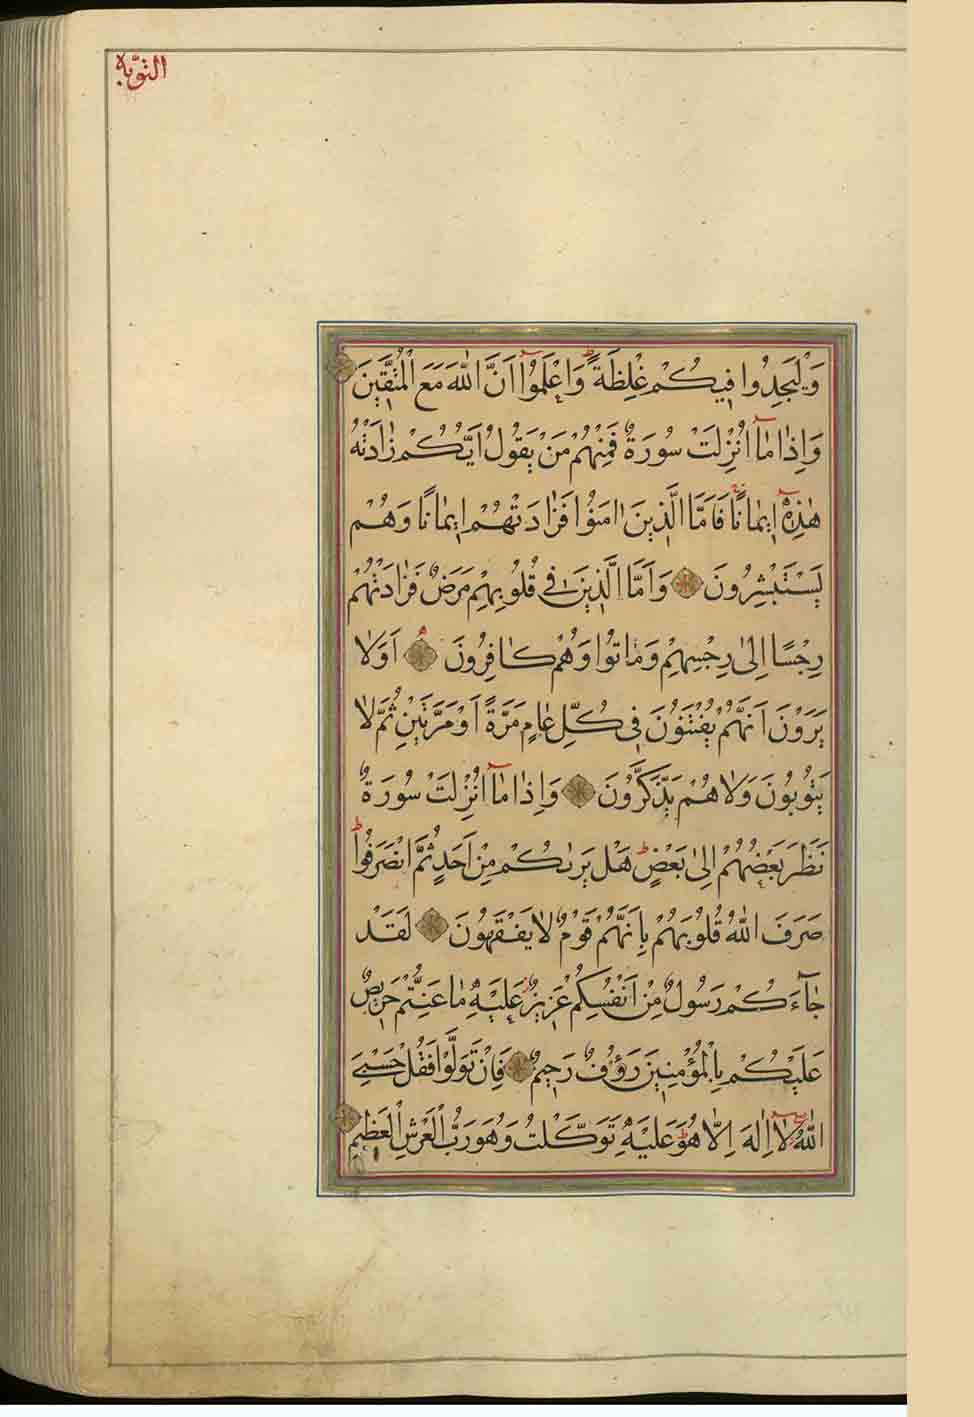 التوبة
وَلْيَجِدُوا فِيكُمْ غِلْظَةً وَاعْلَمُوٓا اَنَّ اللّٰهَ مَعَ الْمُتَّقِينَ
وَاِذَا مَٓا اُنْزِلَتْ سُورَةٌ فَمِنْهُمْ مَنْ يَقُولُ اَيُّكُمْ زَادَتْهُ
هٰذِهٖٓ اِيمَانًا فَاَمَّا الَّذِينَ اٰمَنُوا فَزَادَتْهُمْ اِيمَانًا وَهُمْ
يَسْتَبْشِرُونَ وَاَمَّا الَّذِينَ فِى قُلُوبِهِمْ مَرَضٌ فَزَادَتْهُمْ
رِجْسًا اِلٰى رِجْسِهِمْ وَمَاتُوا وَهُمْ كَافِرُونَ اَوَلَا
يَرَوْنَ اَنَّهُمْ يُفْتَنُونَ فِى كُلِّ عَامٍ مَرَّةً اَوْ مَرَّتَيْنِ ثُمَّ لَا
يَتُوبُونَ وَلَا هُمْ يَذَّكَّرُونَ وَاِذَا مَٓا اُنْزِلَتْ سُورَةٌ
نَظَرَ بَعْضُهُمْ اِلٰى بَعْضٍ هَلْ يَرٰيكُمْ مِنْ اَحَدٍ ثُمَّ انْصَرَفُوا
صَرَفَ اللّٰهُ قُلُوبَهُمْ بِاَنَّهُمْ قَوْمٌ لَا يَفْقَهُونَ لَقَدْ
جَٓاءَكُمْ رَسُولٌ مِنْ اَنْفُسِكُمْ عَزِيزٌ عَلَيْهِ مَا عَنِتُّمْ حَرِيصٌ
عَلَيْكُمْ بِالْمُؤْمِنِينَ رَؤُفٌ رَحِيمٌ فَاِنْ تَوَلَّوْا فَقُلْ حَسْبِىَ
اللّٰهُ لَٓا اِلٰهَ اِلَّا هُوَ عَلَيْهِ تَوَكَّلْتُ وَهُوَ رَبُّ الْعَرْشِ الْعَظِيمِ